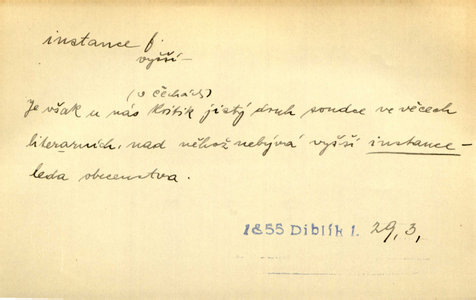 instance f.
vyšší –
(v Čechách)
Je však u nás kritik jistý druh soudce ve věcech
literarních, nad něhož nebývá vyšší instance –
leda obecenstva.
1855 Diblík 1. 29,3,